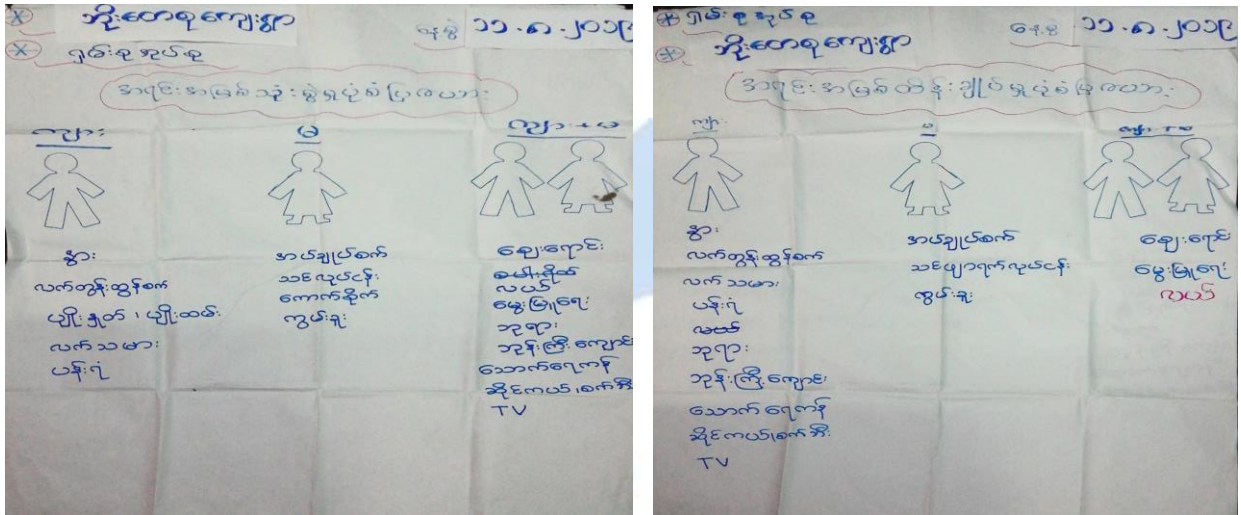 ဘိုးတေစုကျေးရွာ
နေ့စွဲ ၁၁.၈.၂၀၁၉
ရှမ်းစုအုပ်စု
အရင်းအမြစ်သုံးစွဲမှုပုံစံပြဇယား
ကျား
မ
ကျား+မ
နွား
လက်တွန်းထွန်စက်
ပျိုးနှုတ်၊ ပျိုးထမ်း
လက်သမား
ပန်းရံ
အပ်ချုပ်စက်
သစ်လုပ်ငန်း
ကောက်စိုက်
ကွမ်းရူး
ဈေးရောင်း
စပါးရိတ်
လယ်
မွေးမြူရေး
ဘုရား
ဘုန်းကြီးကျောင်း
သောက်ရေကန်
ဆိုင်ကယ်၊စက်ဘီး
TV
ရှမ်းစုအုပ်စု
နေ့စွဲ ၁၁.၈.၂၀၁၉
ဘိုးတေစုကျေးရွာ
အရင်းအမြစ်ထိန်းချုပ်မှုပုံစံပြဇယား
ကျား
မ
ကျား+မ
နွား
လက်တွန်းထွန်စက်
လက်သမား
ပန်းရံ
လယ်
ဘုရား
ဘုန်းကြီးကျောင်း
သောက်ရေကန်
ဆိုင်ကယ်၊စက်ဘီး
TV
အပ်ချုပ်စက်
သစ်ပျာရက်လုပ်ငန်း
ကွမ်းရူး
ဈေးရောင်း
မွေးမြူရေး
လယ်